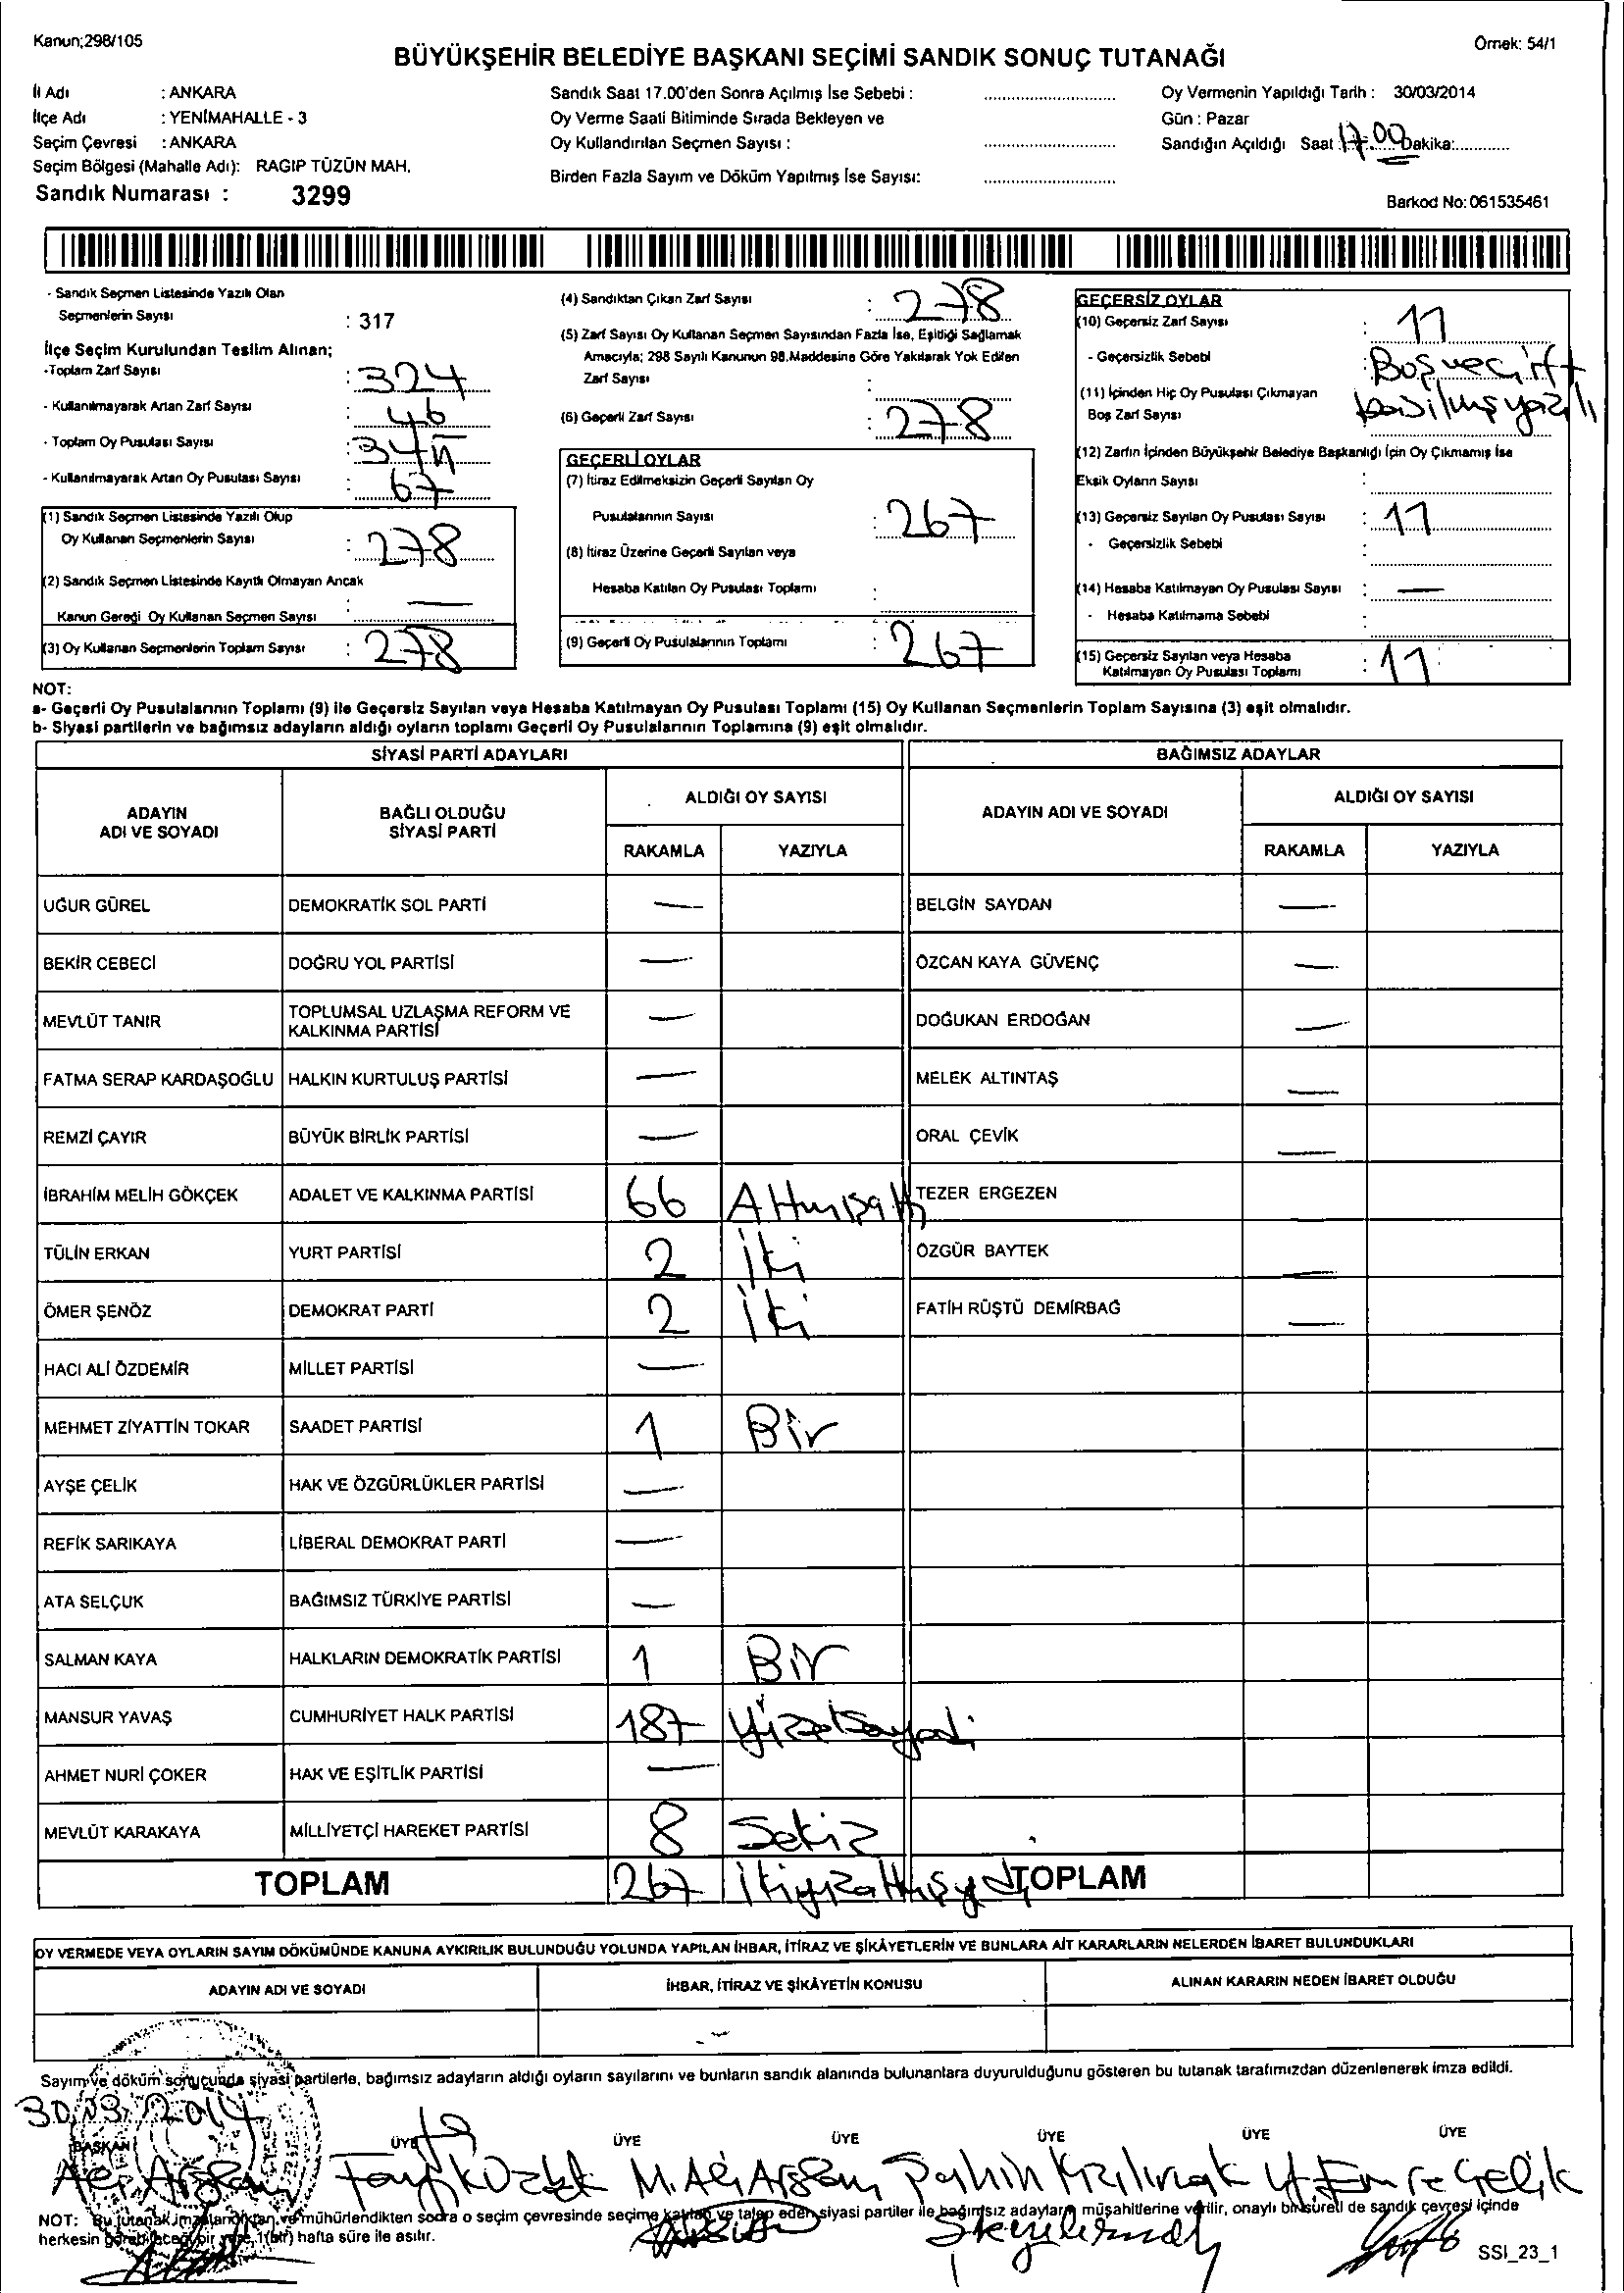 Kanun;298/105
Örnek: 54/1
BÜYÜKŞEHİR BELEDİYE BAŞKANI SEÇİMİ SANDIK SONUÇ TUTANAĞI
İl Adı : ANKARA
İlçe Adı : YENİMAHALLE - 3
Seçim Çevresi : ANKARA
Seçim Bölgesi (Mahalle Adı): RAGIP TÜZÜN MAH.
Sandık Numarası : 3299
Sandık Saat 17.00'den Sonra Açılmış İse Sebebi :
Oy Verme Saati Bitiminde Sırada Bekleyen ve
Oy Kullandırılan Seçmen Sayısı :
Birden Fazla Sayım ve Döküm Yapılmış İse Sayısı:
Oy Vermenin Yapıldığı Tarih : 30/03/2014
Gün : Pazar
Sandığın Açıldığı Saat 17.00 Dakika:
Barkod No: 061535461
- Sandık Seçmen Listesinde Yazılı Olan
Seçmenlerin Sayısı : 317
İlçe Seçim Kurulundan Teslim Alınan;
-Toplam Zarf Sayısı : 324
- Kullanılmayarak Artan Zarf Sayısı : 46
- Toplam Oy Pusulası Sayısı : 345
- Kullanılmayarak Artan Oy Pusulası Sayısı : 67
(1) Sandık Seçmen Listesinde Yazılı Olup
Oy Kullanan Seçmenlerin Sayısı : 278
(2) Sandık Seçmen Listesinde Kayıtlı Olmayan Ancak
Kanun Gereği Oy Kullanan Seçmen Sayısı : —
(3) Oy Kullanan Seçmenlerin Toplam Sayısı : 278
(4) Sandıktan Çıkan Zarf Sayısı : 278
(5) Zarf Sayısı Oy Kullanan Seçmen Sayısından Fazla İse, Eşitliği Sağlamak
Amacıyla; 298 Sayılı Kanunun 98.Maddesine Göre Yakılarak Yok Edilen
Zarf Sayısı :
(6) Geçerli Zarf Sayısı : 278
GEÇERLİ OYLAR
(7) İtiraz Edilmeksizin Geçerli Sayılan Oy
Pusulalarının Sayısı : 267
(8) İtiraz Üzerine Geçerli Sayılan veya
Hesaba Katılan Oy Pusulası Toplamı :
(9) Geçerli Oy Pusulalarının Toplamı : 267
GEÇERSİZ OYLAR
(10) Geçersiz Zarf Sayısı : 11
- Geçersizlik Sebebi : Boş ve çift
basılmış yazılı
(11) İçinden Hiç Oy Pusulası Çıkmayan
Boş Zarf Sayısı
(12) Zarfın İçinden Büyükşehir Belediye Başkanlığı İçin Oy Çıkmamış İse
Eksik Oyların Sayısı :
(13) Geçersiz Sayılan Oy Pusulası Sayısı : 11
- Geçersizlik Sebebi :
(14) Hesaba Katılmayan Oy Pusulası Sayısı : —
- Hesaba Katılmama Sebebi :
(15) Geçersiz Sayılan veya Hesaba
Katılmayan Oy Pusulası Toplamı : 11
NOT:
a- Geçerli Oy Pusulalarının Toplamı (9) ile Geçersiz Sayılan veya Hesaba Katılmayan Oy Pusulası Toplamı (15) Oy Kullanan Seçmenlerin Toplam Sayısına (3) eşit olmalıdır.
b- Siyasi partilerin ve bağımsız adayların aldığı oyların toplamı Geçerli Oy Pusulalarının Toplamına (9) eşit olmalıdır.
SİYASİ PARTİ ADAYLARI BAĞIMSIZ ADAYLAR
ADAYIN
ADI VE SOYADI
BAĞLI OLDUĞU
SİYASİ PARTİ
ALDIĞI OY SAYISI
RAKAMLA YAZIYLA
ADAYIN ADI VE SOYADI
ALDIĞI OY SAYISI
RAKAMLA YAZIYLA
UĞUR GÜREL DEMOKRATİK SOL PARTİ — BELGİN SAYDAN —
BEKİR CEBECİ DOĞRU YOL PARTİSİ — ÖZCAN KAYA GÜVENÇ —
MEVLÜT TANIR TOPLUMSAL UZLAŞMA REFORM VE
KALKINMA PARTİSİ — DOĞUKAN ERDOĞAN —
FATMA SERAP KARDAŞOĞLU HALKIN KURTULUŞ PARTİSİ — MELEK ALTINTAŞ —
REMZİ ÇAYIR BÜYÜK BİRLİK PARTİSİ — ORAL ÇEVİK —
İBRAHİM MELİH GÖKÇEK ADALET VE KALKINMA PARTİSİ 66 Altmışaltı TEZER ERGEZEN —
TÜLİN ERKAN YURT PARTİSİ 2 İki ÖZGÜR BAYTEK —
ÖMER ŞENÖZ DEMOKRAT PARTİ 2 İki FATİH RÜŞTÜ DEMİRBAĞ —
HACI ALİ ÖZDEMİR MİLLET PARTİSİ —
MEHMET ZİYATTİN TOKAR SAADET PARTİSİ 1 Bir
AYŞE ÇELİK HAK VE ÖZGÜRLÜKLER PARTİSİ —
REFİK SARIKAYA LİBERAL DEMOKRAT PARTİ —
ATA SELÇUK BAĞIMSIZ TÜRKİYE PARTİSİ —
SALMAN KAYA HALKLARIN DEMOKRATİK PARTİSİ 1 Bir
MANSUR YAVAŞ CUMHURİYET HALK PARTİSİ 187
AHMET NURİ ÇOKER HAK VE EŞİTLİK PARTİSİ —
MEVLÜT KARAKAYA MİLLİYETÇİ HAREKET PARTİSİ 8 Sekiz
TOPLAM 267 İkiyüzaltmışyedi TOPLAM
OY VERMEDE VEYA OYLARIN SAYIM DÖKÜMÜNDE KANUNA AYKIRILIK BULUNDUĞU YOLUNDA YAPILAN İHBAR, İTİRAZ VE ŞİKÂYETLERİN VE BUNLARA AİT KARARLARIN NELERDEN İBARET BULUNDUKLARI
ADAYIN ADI VE SOYADI İHBAR, İTİRAZ VE ŞİKÂYETİN KONUSU ALINAN KARARIN NEDEN İBARET OLDUĞU
Sayım ve döküm sonucunda siyasi partilerle, bağımsız adayların aldığı oyların sayılarını ve bunların sandık alanında bulunanlara duyurulduğunu gösteren bu tutanak tarafımızdan düzenlenerek imza edildi.
30.03.2014
BAŞKAN ÜYE ÜYE ÜYE ÜYE ÜYE ÜYE
M. Ali Arslan Y. Emre Çelik
NOT: Bu tutanak imzalandıktan ve mühürlendikten sonra o seçim çevresinde seçime katılan ve talep eden siyasi partiler ile bağımsız adayların müşahitlerine verilir, onaylı bir sureti de sandık çevresi içinde
herkesin görebileceği bir yere 1(bir) hafta süre ile asılır.
SSI_23_1